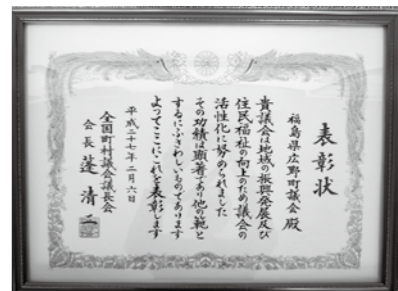 表彰状
福島県広野町議会殿
貴議会は地域の振興発展及び
住民福祉の向上のため議会の
活性化に努められました
その功績は顕著であり他の範と
するにふさわしいものであります
よってここにこれを表彰します
平成二十七年二月六日
全国町村議会議長会
会長 蓬 清二